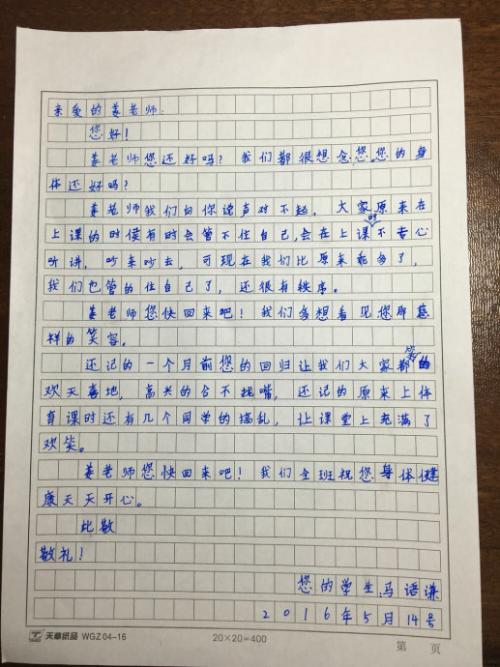 亲爱的姜老师:
您好!
姜老师您还好吗?我们都很想念您,您的身
体还好吗?
姜老师我们向你说声对不起,大家原来在
上课的时侯有时会管不住自己,会在上课时不专心
听讲,吵来吵去,可现在我们比原来乖多了,
我们也管的住自己了,还很有秩序。
姜老师您快回来吧!我们多想看见您那慈
祥的笑容。
还记的一个月前您的回归让我们大家都笑的
欢天喜地,高兴的合不拢嘴,还记的原来上体
育课时还有几个同学的捣乱,让课堂上充满了
欢柴。
姜老师您快回来吧!我们全班祝您身体健
康天天开心。
此敬
敬礼!
您的学生:马语谦
2016年5月14号
天章纸品 WGZ 04-16 20×20=400 第 页